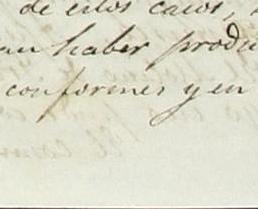 de estos casos,
haber produ
conformes y en